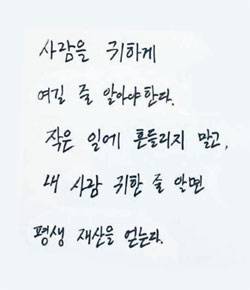 사람을 귀하게
여길 줄 알아야한다.
작은 일에 흔들리지 말고,
내 사람 귀한 줄 알면
평생 재산을 얻는다.